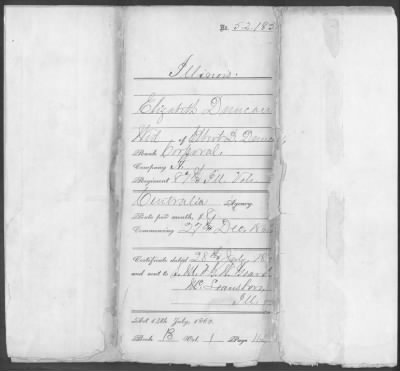 No. 52.185
Illinois.
Elizabeth Duncan
Wid of Albert D. Duncan
Rank Corporal
Company A
Regiment 87th Ill Vols
Centralia Agency
Rate per month, $8
Commencing 27th Dec.
Certificate dated 28th July
and sent to
Mc Leansboro
Ill
Act 14th July, 1862.
Book B Vol 1 Page